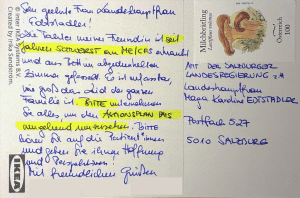 Sehr geehrte Frau Landeshauptfrau
Edtstadler!
Die Tochter meiner Freundin ist seit
Jahren SCHWERST an ME/CFS erkrankt
und ans Bett im abgedunkelten
Zimmer gefesselt. Es ist unfassbar,
wie groß das Leid der ganzen
Familie ist. BITTE unternehmen
Sie alles, um den AKTIONSPLAN PAIS
umgehend umzusetzen. BITTE
Sie auf die Patient*innen
und geben Sie ihnen Hoffnung
und Perspektiven!
Mit freundlichen Grüßen
IKEA
© Inter IKEA Systems B.V.
Created by
Milchbrätling
Österreich
100
AMT DER SALZBURGER
LANDESREGIERUNG z.H
Landeshauptfrau
Maga Karoline EDTSTADLER
Postfach 527
5010 SALZBURG